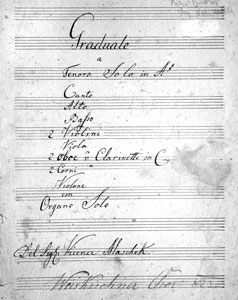 Graduale
a
Tenore Solo in A♭
Canto
Alto
Basso
2 Violini
Viola
2 Oboe Clarinetti in C
2 Corni
Violone
con
Organo Solo
Del Sigr Maschek
Chor